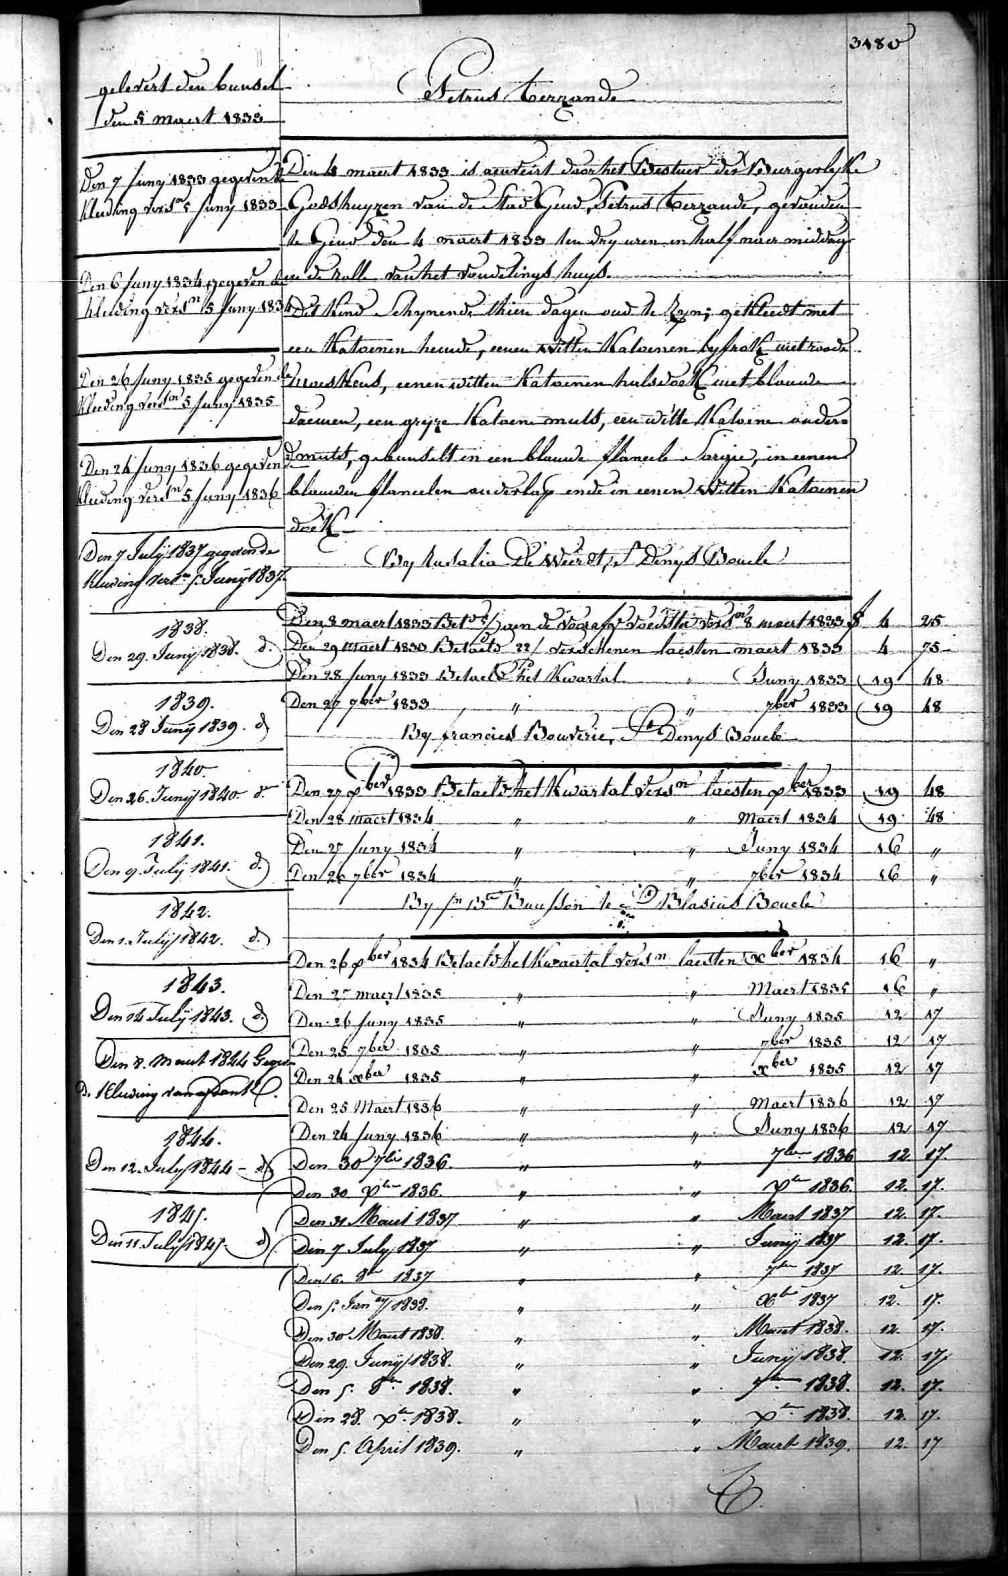 3480
Petrus Terzande
gelevert den bunsel
den 5 maert 1833
Den 7 Juny 1833 gegeven de
kleeding versn 5 Juny 1833
Den 6 Juny 1834 gegeven de
kleeding versn 5 Juny 1834
Den 26 Juny 1835 gegeven de
kleeding versn 5 Juny 1835
Den 24 Juny 1836 gegeven de
kleeding versn 5 Juny 1836
Den 7 Julij 1837 gegeven de
kleeding versn 5 Junij 1837
1838.
Den 29. Junij 1838. d.
1839.
Den 28 Junij 1839. d
1840.
Den 26. Junij 1840 d
1841.
Den 9. Julij 1841. d.
1842.
Den 1. Julij 1842. d.
1843.
Den 14 Julij 1843. d
Den 8. Maart 1844 Gegeven
d. Kleeding
1844.
Den 12. July 1844 - d
1845.
Den 11 July 1845 d
Den 4 maert 1833 is aenveirt door het Bestuer der Burgerlyke
Godshuyzen van de Stad Gend, Petrus Terzande, gevonden
te Gend den 4 maert 1833 ten dry uren en half naer middag
in de rolle van het vondelings huys
Dit Kind Schynende thien dagen oud te zyn; gekleedt met
een Katoenen hemde, eenen witten Katoenen byfrok met roode
moeskens, eenen witten Katoenen halsdoek met blauwe
daemen, een gryze Katoene muts, een witte Katoene onder=
muts, gebunselt in een blauwe flaneele Sargie, in eenen
blauwen flaneelen onderlag ende in eenen Witten Katoenen
doek
By Rosalia De Weirdt, St Denys Boucle
Den 8 maert 1833 Bet aen de voorafge voedster versn 8 maert 1833 f 4 25
Den 29 Maert 1833 Betaeld 22/ verschenen laesten maert 1833 4 75
Den 28 Juny 1833 Betaeld het Kwartal " Juny 1833 19 48
Den 27 7ber 1833 " " 7ber 1833 19 48
By francies Bouverie, St Denys Boucle
Den 27 xber 1833 Betaeld het Kwartal versn laesten xber 1833 19 48
Den 28 maert 1834 " " Maert 1834 19 48
Den 27 Juny 1834 " " Juny 1834 16 "
Den 26 7ber 1834 " " 7ber 1834 16 "
By Jn Bte Buusson te St Blasius Boucle
Den 26 xber 1834 Betaeld het Kwaertal versn laesten xber 1834 16 "
Den 27 maert 1835 " " Maert 1835 16 "
Den 26 Juny 1835 " " Juny 1835 12 17
Den 25 7ber 1835 " " 7ber 1835 12 17
Den 24 xber 1835 " " xber 1835 12 17
Den 25 Maert 1836 " " Maert 1836 12 17
Den 24 Juny 1836 " " Juny 1836 12 17
Den 30 7br 1836. " " 7br 1836 12 17.
Den 30 xbr 1836. " " xbr 1836. 12. 17.
Den 31 Maert 1837 " " Maert 1837 12. 17.
Den 7 July 1837 " " Junij 1837 12. 17.
Den 6. 8br 1837 " " 7br 1837 12 17.
Den 5. Janry 1838. " " xbr 1837 12. 17.
Den 30 Maert 1838. " " Maert 1838. 12. 17.
Den 29. Junij 1838. " " Junij 1838. 12. 17
Den 5. 8br 1838. " " 7br 1838. 12. 17.
Den 28. xbr 1838. " " xbr 1838. 12. 17.
Den 5. April 1839. " " Maert 1839. 12. 17